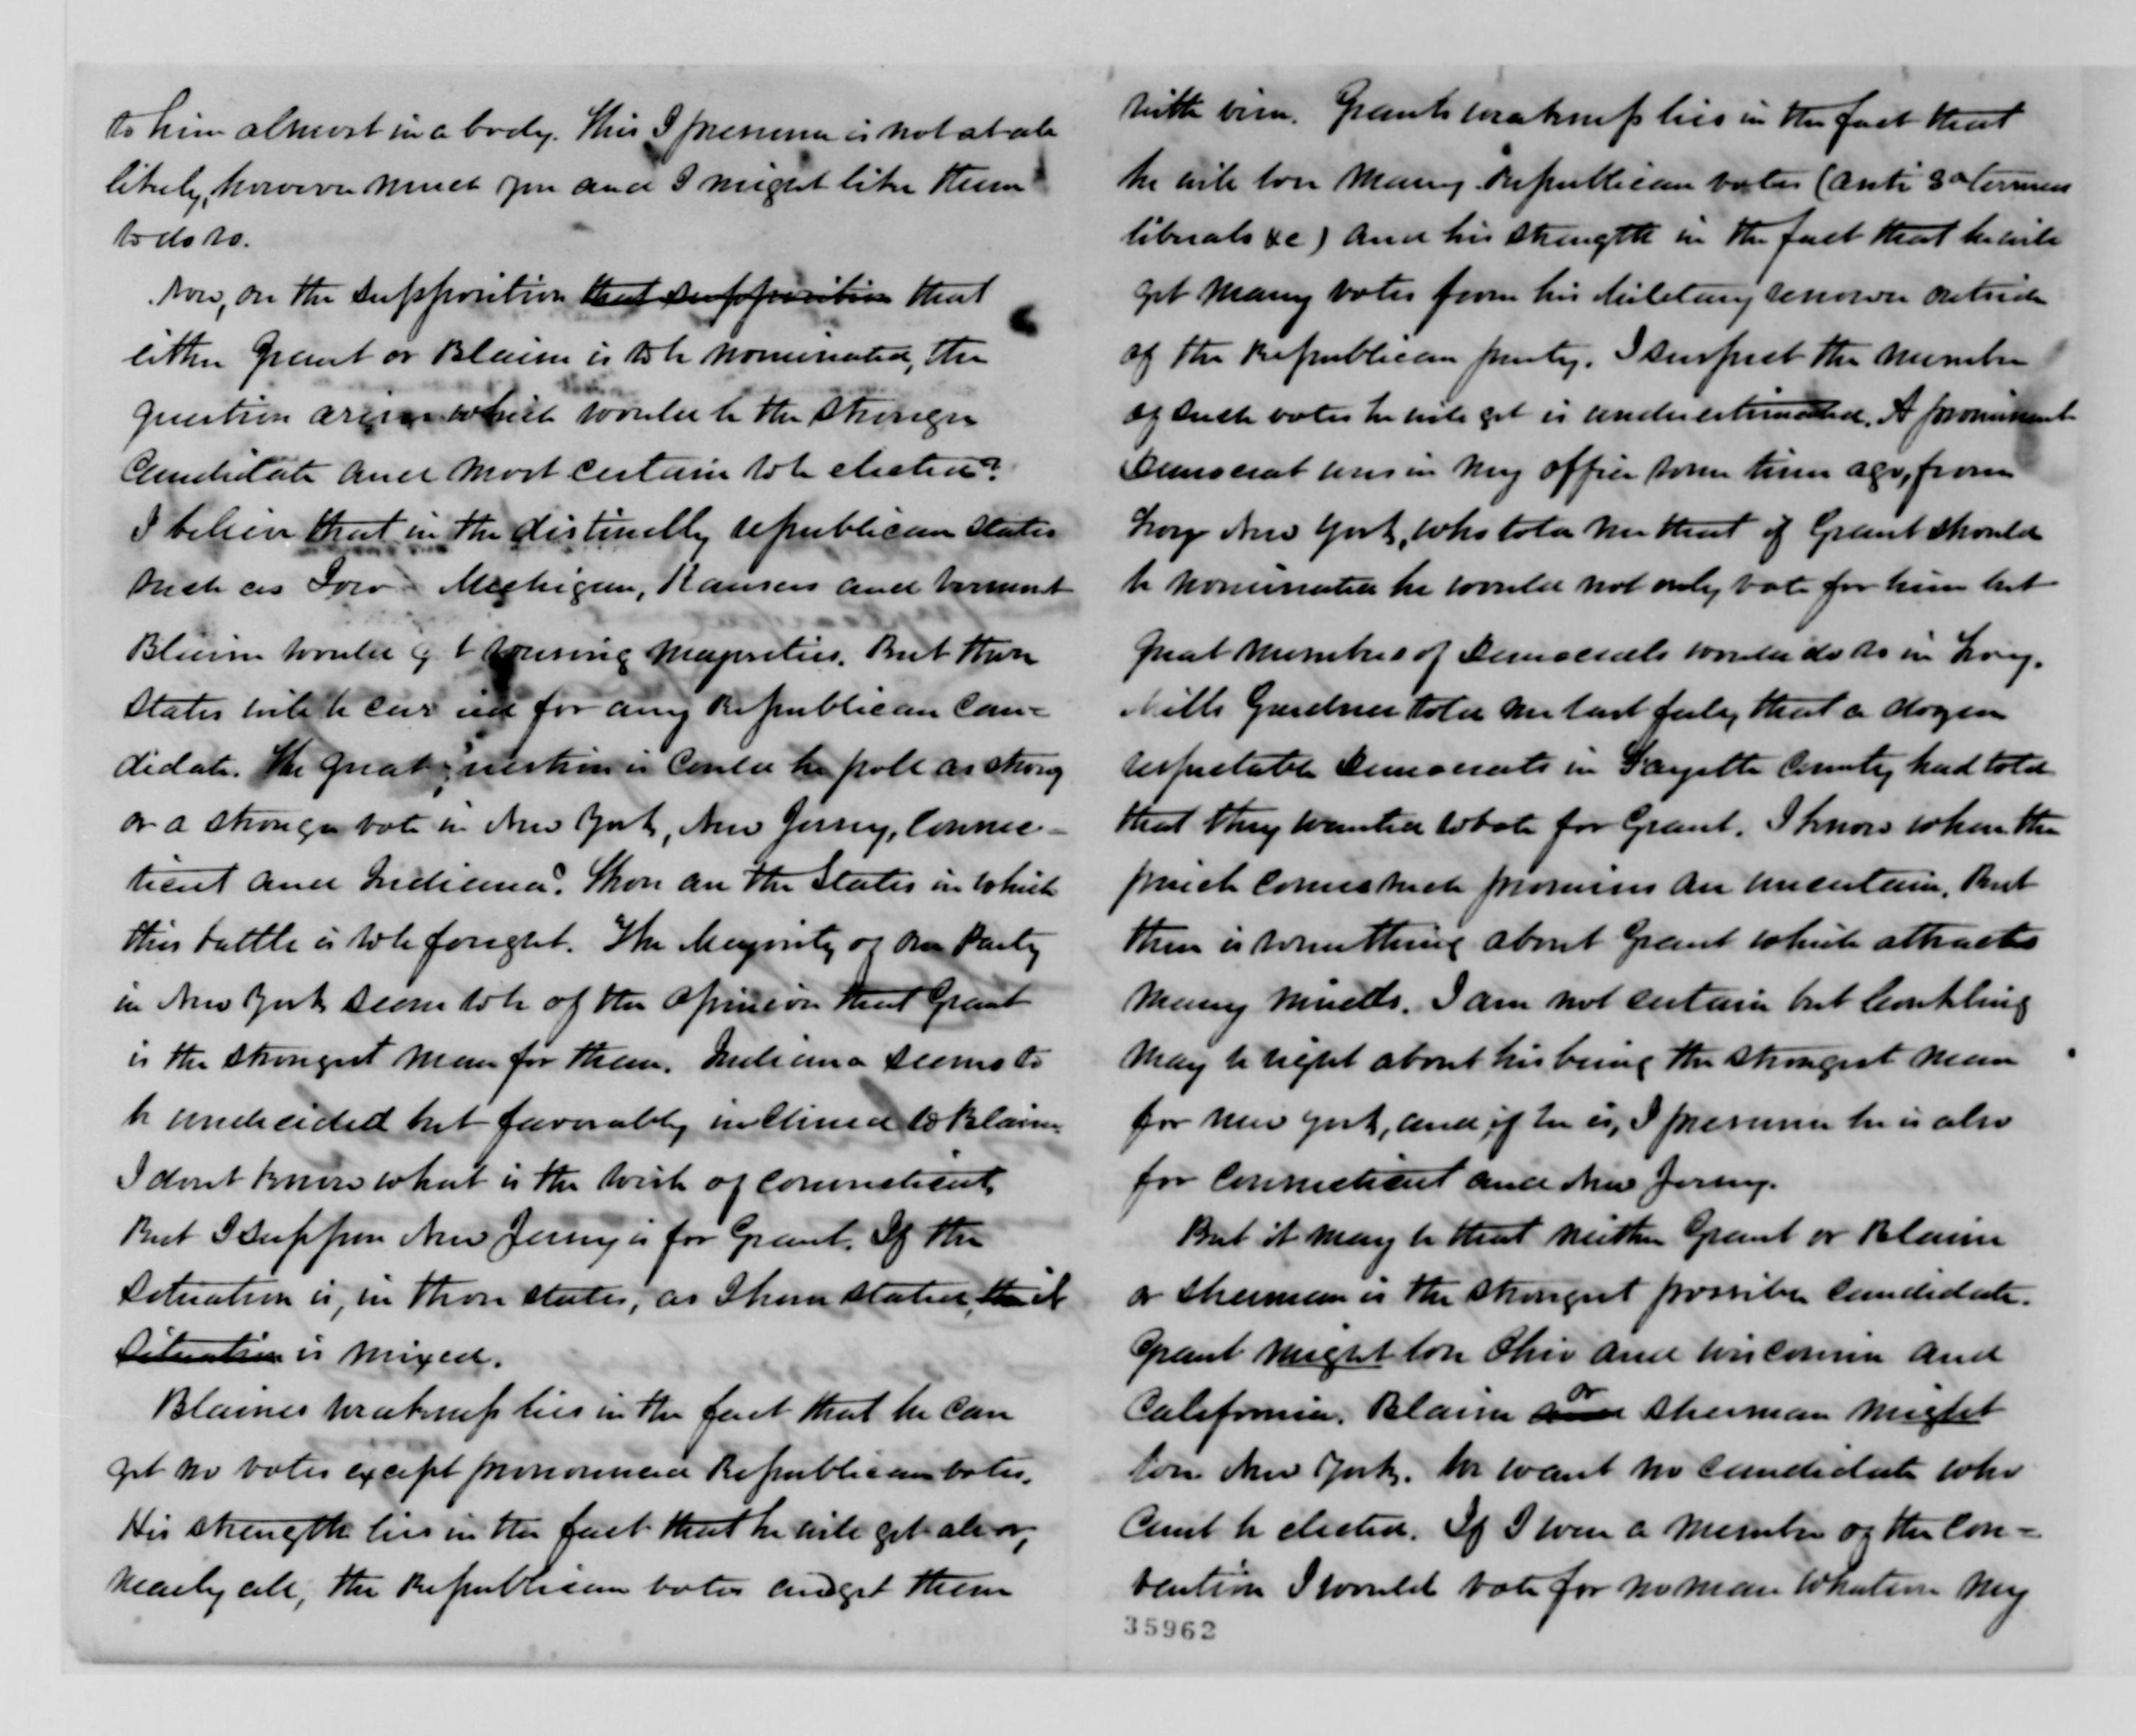 to him almost in a body. This I presume is not at all
likely, however much you and I might like them
to do so.
Now, on the supposition that supposition that
either Grant or Blaine is to be nominated, the
question arises which would be the stronger
Candidate and most certain to be elected?
I believe that in the distinctly republican States
such as Iowa Michigan, Kansas and Vermont
Blaine would get rousing majorities. But those
States will be carried for any Republican Can-
didate. The great question is Could he poll as strong
or a stronger vote in New York, New Jersey, Connec-
ticut and Indiana? Those are the States in which
this battle is to be fought. The Majority of our Party
in New York seem to be of the opinion that Grant
is the strongest man for them. Indiana seems to
be undecided but favorably inclined to Blaine.
I dont know what is the wish of Connecticut,
But I suppose New Jersey is for Grant. If the
Situation is, in those states, as I have stated, then it
Situation is mixed.
Blaines weakness lies in the fact that he can
get no votes except pronounced Republican votes.
His strength lies in the fact that he will get all or,
nearly all, the Republican votes and get them
with vim. Grants weakness lies in the fact that
he will lose many Republican votes (anti 3d termers
liberals &c) and his strength in the fact that he will
get many votes from his Military renown outside
of the Republican party. I suspect the number
of such votes he will get is underestimated. A prominent
Democrat was in my office some time ago, from
Troy New York, who told me that if Grant should
be nominated he would not only vote for him but
great numbers of Democrats would do so in Troy.
Mills Gardner told me last fall, that a dozen
respectable Democrats in Fayette County had told
that they wanted to vote for Grant. I know when the
pinch comes such promises are uncertain. But
there is something about Grant which attracts
many minds. I am not certain but Conkling
may be right about his being the strongest man
for New York, and if he is, I presume he is also
for Connecticut and New Jersey.
But it may be that neither Grant or Blaine
or Sherman is the strongest possible Candidate.
Grant might lose Ohio and Wisconsin and
California. Blaine and or Sherman might
lose New York. We want no candidate who
Cant be elected. If I were a member of the Con-
vention I would vote for no man whatever my
35962